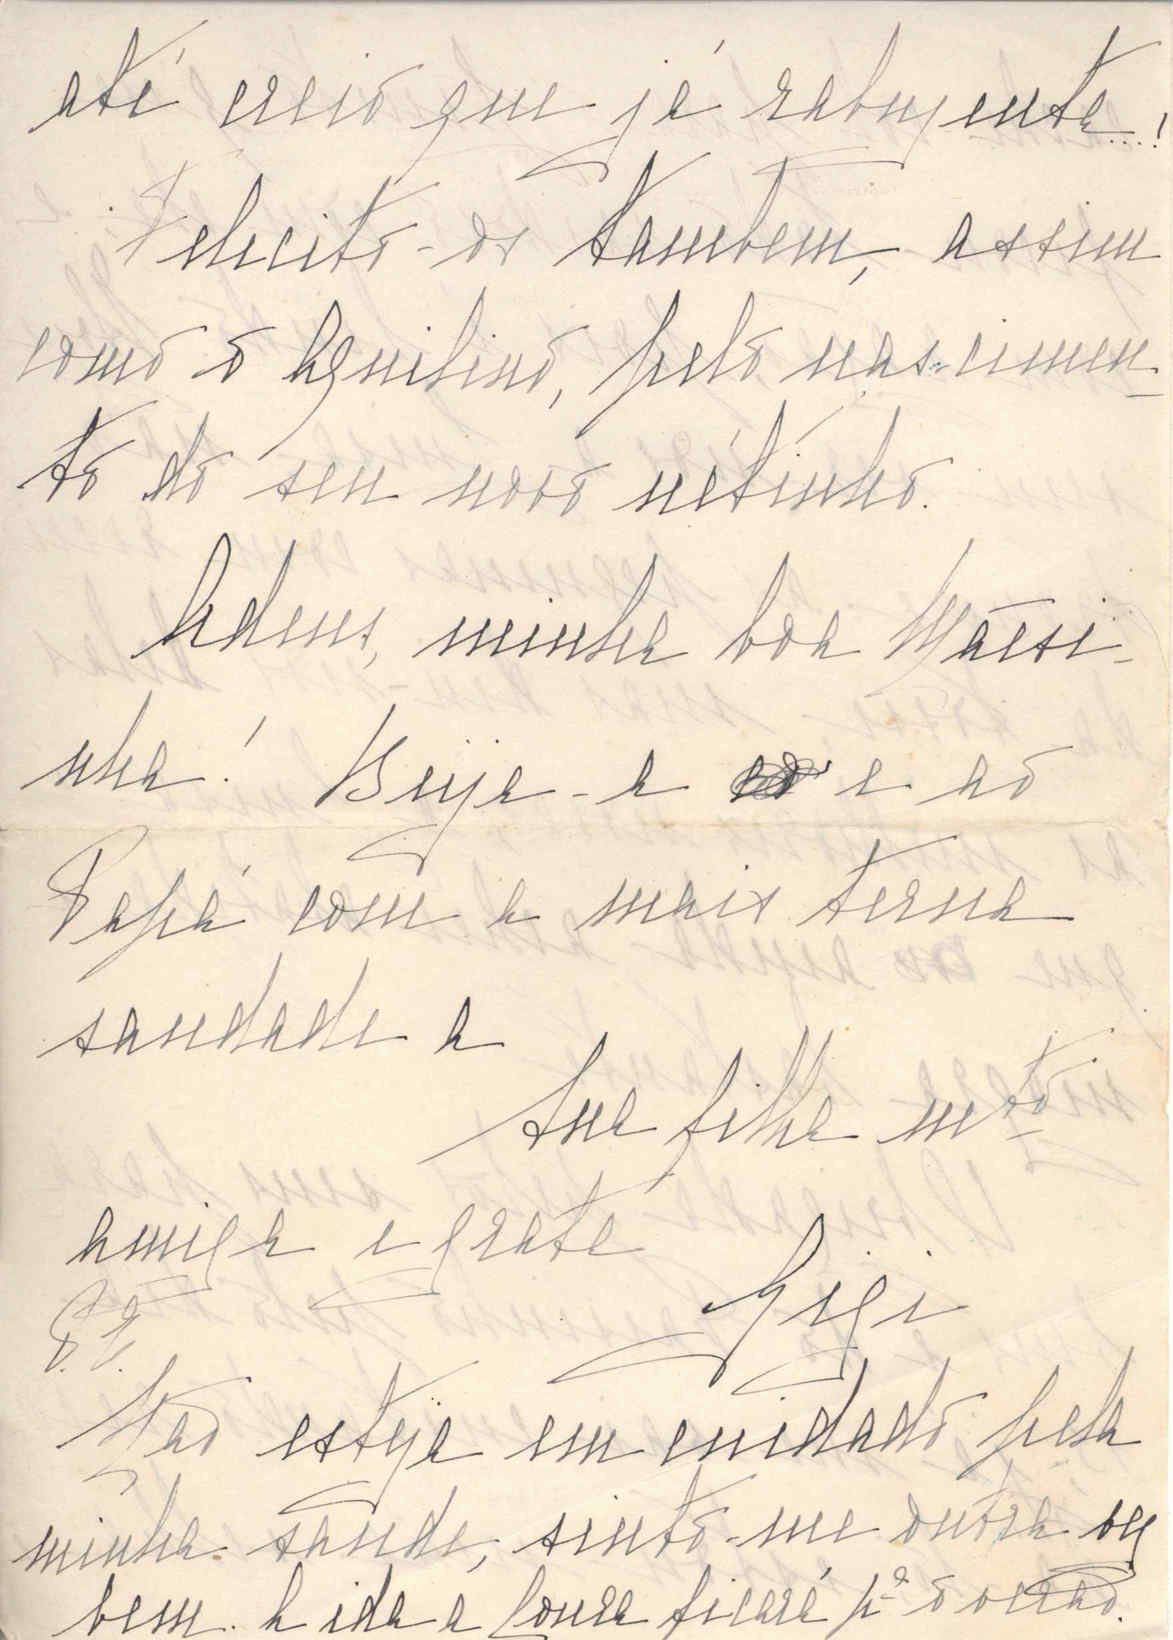 até creio que já rabujenta...!
Felicito-os tambem, assim
como o Aquilino, pelo nascimen-
to do seu novo nétinho.
Adeus, minha boa Mãesi-
nha! Beija-a e ao
Papá com a mais terna
saudade a
Sua filha mto
amiga e grata
Gigi
P.S.
Não esteja em cuidado pela
minha saude, sinto-me outra vez
bem. A ida a Soure ficará pa o verão.